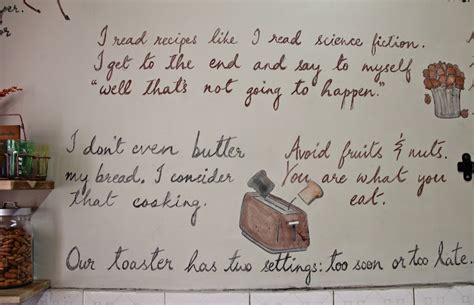 I read recipes like I read science fiction.
I get to the end and say to myself
"well that's not going to happen."
I don't even butter
my bread. I consider
that cooking.
Avoid fruits & nuts.
You are what you
eat.
Our toaster has two settings: too soon or too late.